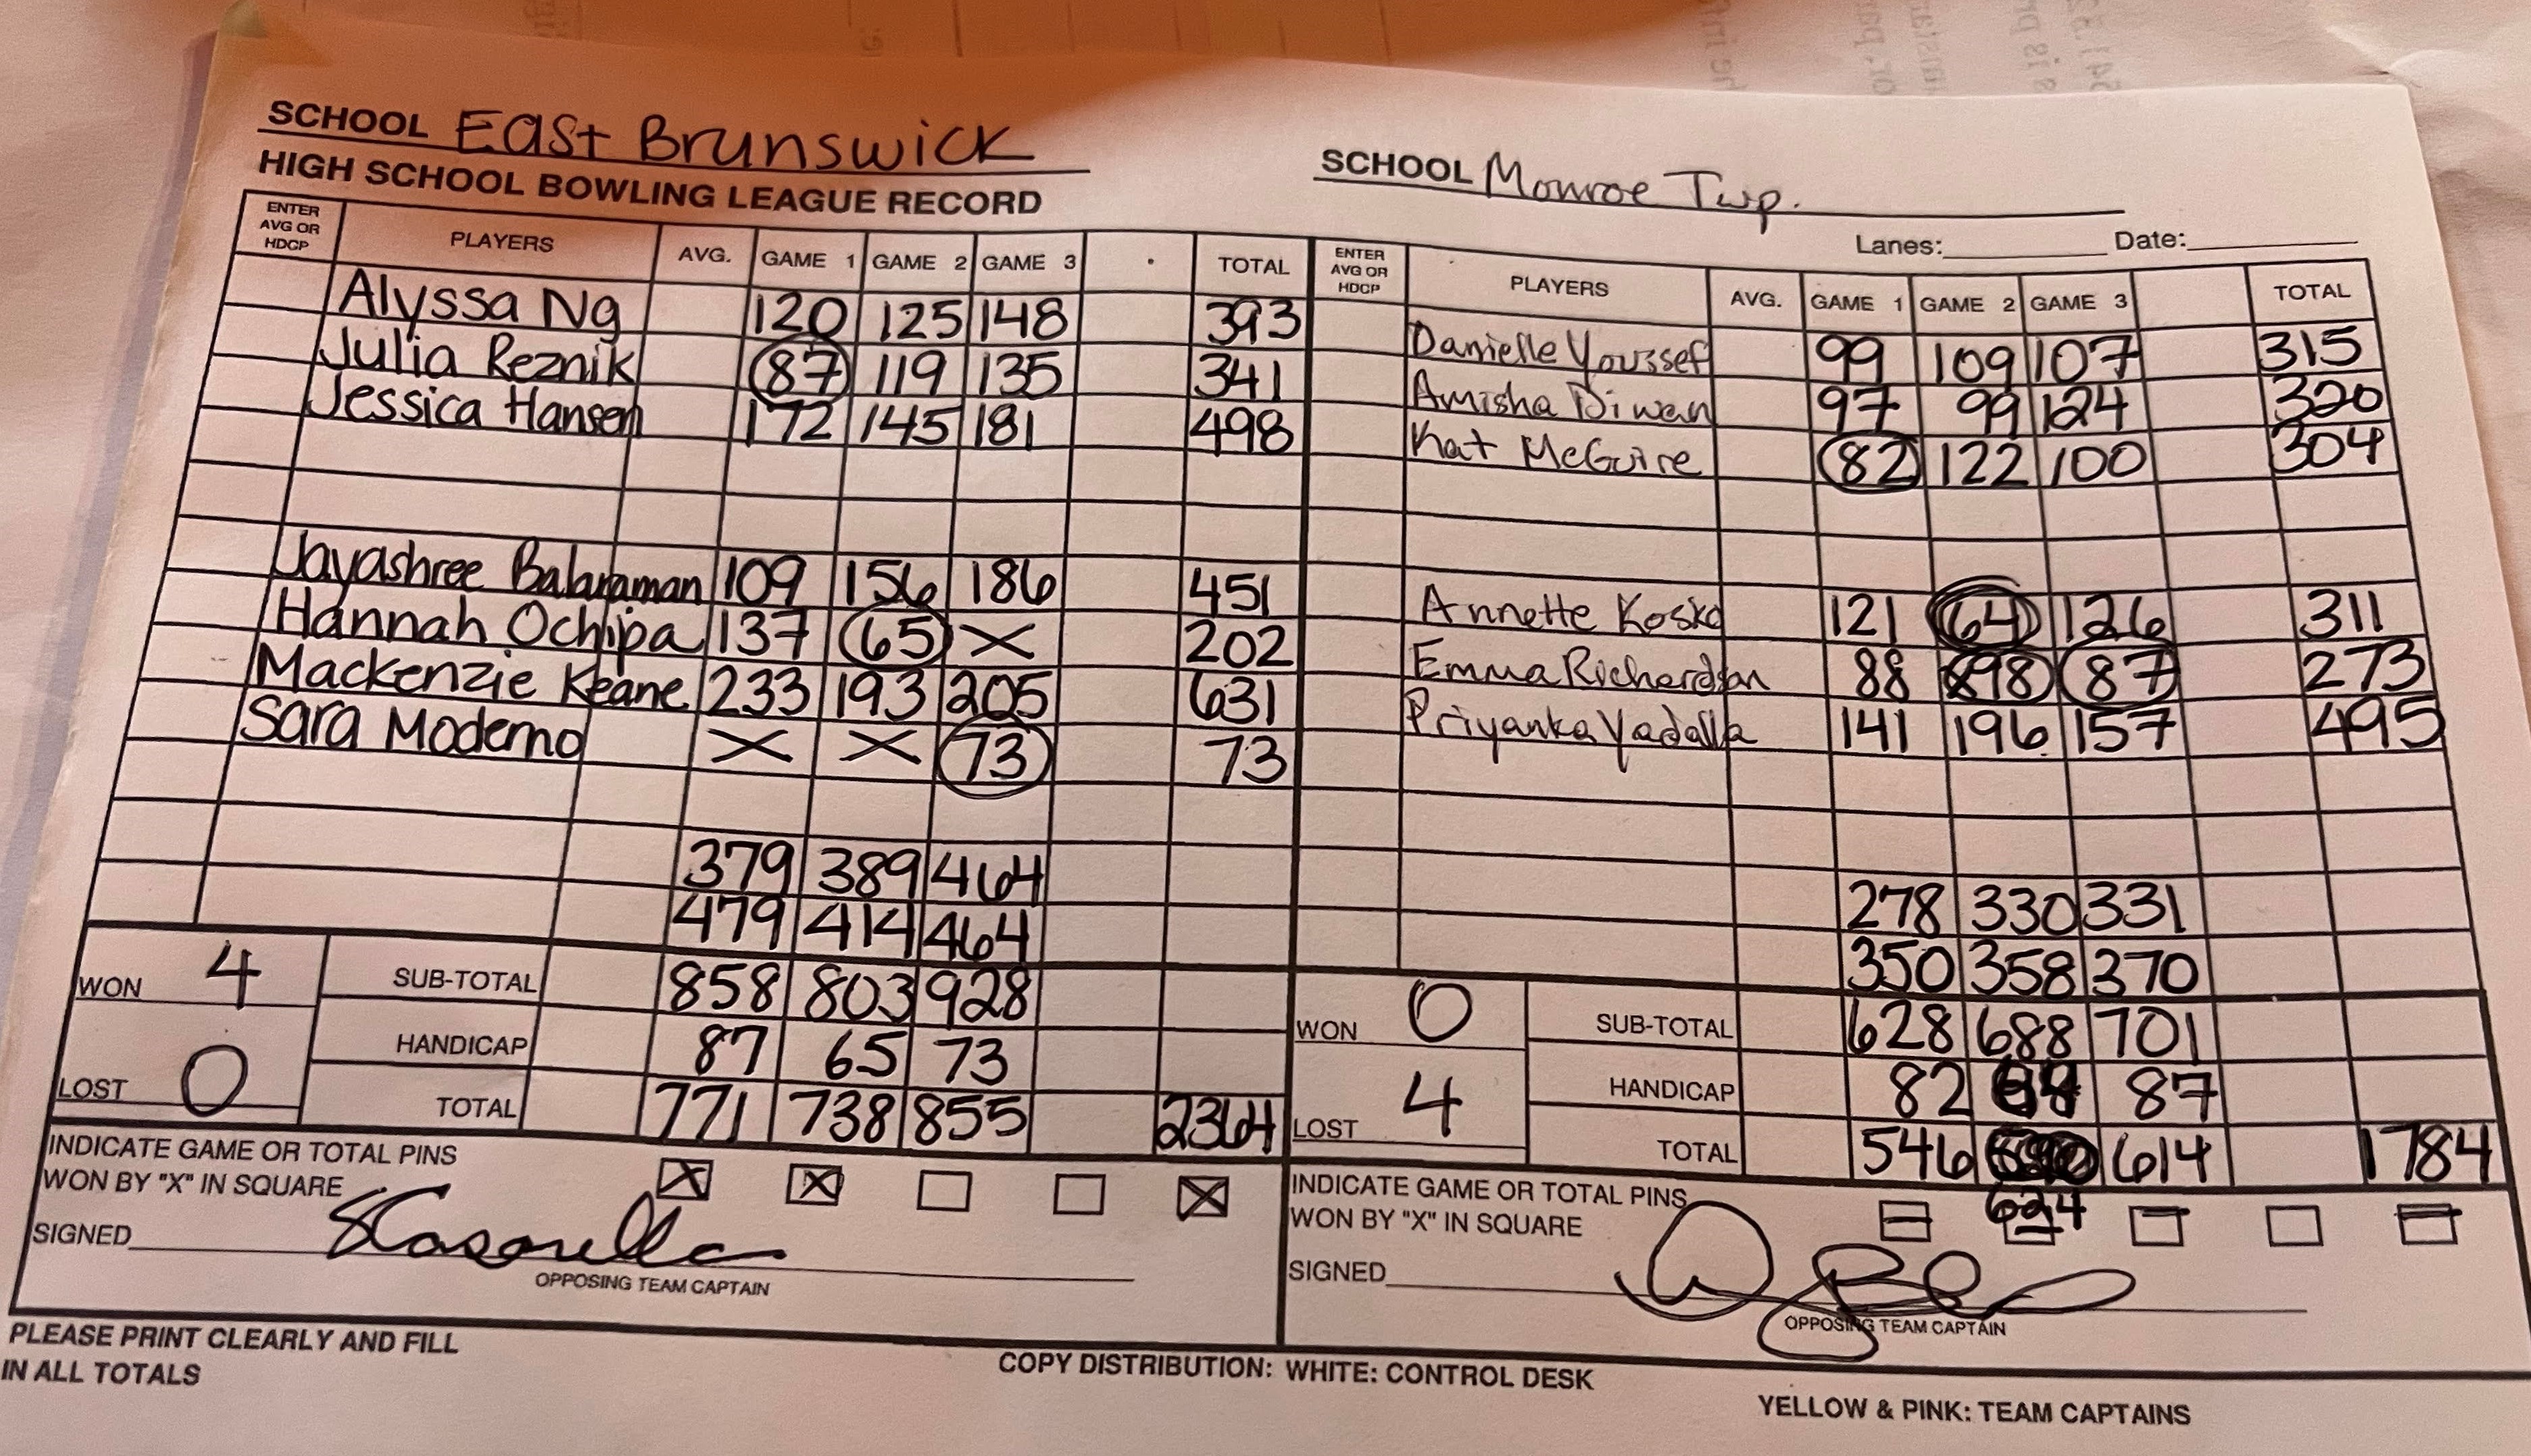 SCHOOL East Brunswick
HIGH SCHOOL BOWLING LEAGUE RECORD
ENTER AVG OR HDCP PLAYERS AVG. GAME 1 GAME 2 GAME 3 TOTAL
Alyssa Ng 120 125 148 393
Julia Reznik 87 119 135 341
Jessica Hansen 172 145 181 498
Jayashree Balaraman 109 156 186 451
Hannah Ochipa 137 65 X 202
Mackenzie Keane 233 193 205 631
Sara Moderno X X 73 73
379 389 464
479 414 464
WON 4 SUB-TOTAL 858 803 928
HANDICAP 87 65 73
LOST 0 TOTAL 771 738 855 2364
INDICATE GAME OR TOTAL PINS
WON BY "X" IN SQUARE X X X
SIGNED
OPPOSING TEAM CAPTAIN
SCHOOL Monroe Twp.
Lanes: Date:
ENTER AVG OR HDCP PLAYERS AVG. GAME 1 GAME 2 GAME 3 TOTAL
Danielle Youssef 99 109 107 315
Amisha Diwan 97 99 124 320
Kat McGuire 82 122 100 304
Annette Kosko 121 64 126 311
Emma Richardson 88 98 87 273
Priyanka Yadalla 141 196 157 495
278 330 331
350 358 370
WON 0 SUB-TOTAL 628 688 701
HANDICAP 82 87
LOST 4 TOTAL 546 614 1784
624
INDICATE GAME OR TOTAL PINS
WON BY "X" IN SQUARE
SIGNED
OPPOSING TEAM CAPTAIN
PLEASE PRINT CLEARLY AND FILL
IN ALL TOTALS
COPY DISTRIBUTION: WHITE: CONTROL DESK
YELLOW & PINK: TEAM CAPTAINS